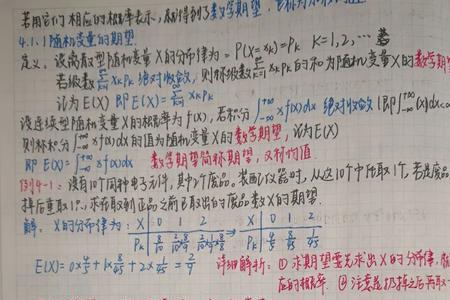 若用它们相应的概率表示,就得到了数学期望,也称为
4.1.1 随机变量的期望.
定义:设离散型随机变量X的分布律为:P(X=xₖ)=Pₖ K=1,2,…
若级数∑xₖPₖ绝对收敛,则称级数∑xₖPₖ的和为随机变量X的数学期
记为E(X) 即E(X)=∑xₖPₖ
设连续型随机变量X的概率为f(x),若积分∫xf(x)dx 绝对收敛(即∫
则称积分∫xf(x)dx的值为随机变量X的数学期望,记为E(X)
即 E(X)=∫xf(x)dx 数学期望简称期望,又称均值.
例4-1:设有10个同种电子元件,其中2个废品.装配仪器时,从这10个中任取1个,若是废品
扔后重取1只,求在取到正品之前已取出的废品数X的期望.
解:X的分布律为: X 0 1 2 → X 0 1 2
Pₖ 8/10 2/10·8/9 2/10·1/9·8/8 Pₖ 4/5 8/45 1/45
E(X)=0×4/5+1×8/45+2×1/45=2/9 详细解析:①求期望要先求出X的分布律,
应的概率.②注意是扔掉之后再取一